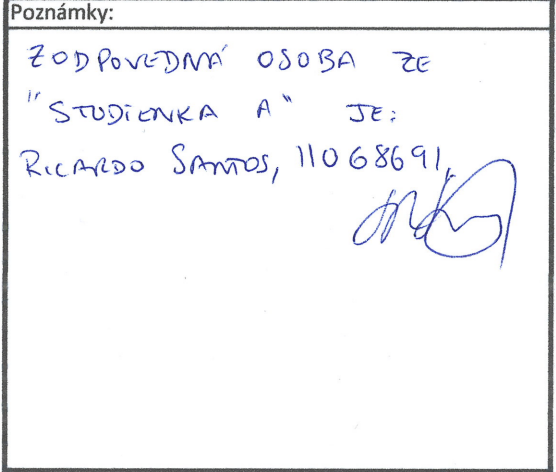 Poznámky:
ZODPOVEDNÁ OSOBA ZE
"STUDIENKA A" JE:
RICARDO SANTOS, 11068691,